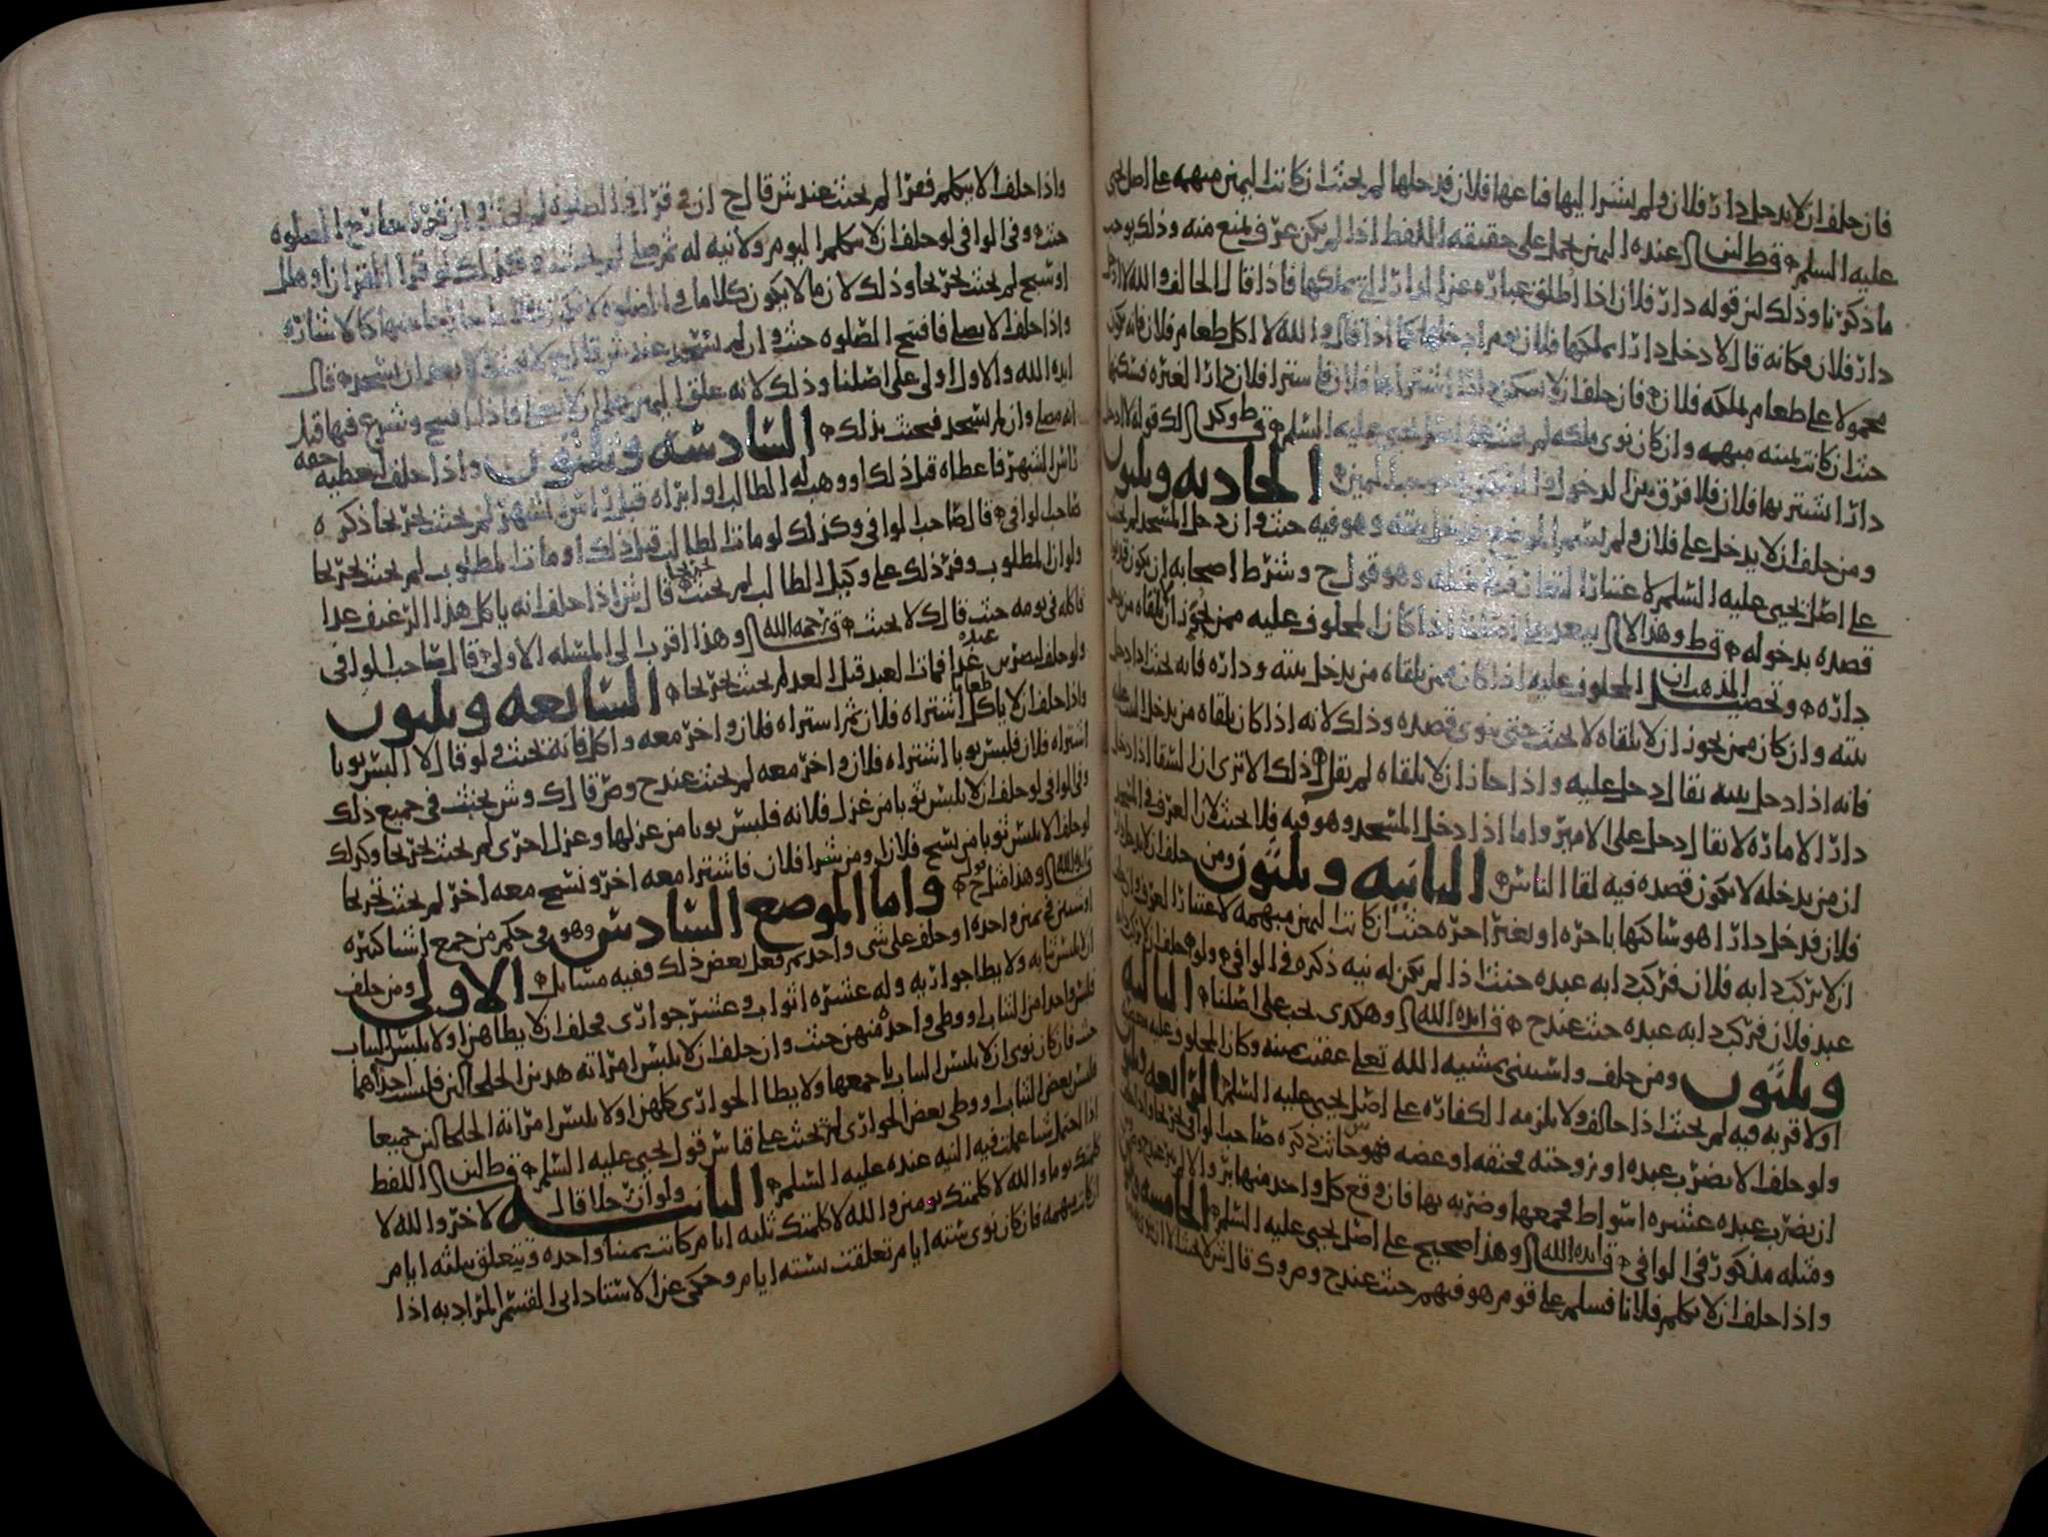 فان حلف ان لا يدخل دار فلان ولم يشرا ليها فباعها فلان فدخلها لم يحنث ان كانت اليمين مبهمه على اصل يحيى
عليه السلم قط لنن عنده اليمين تحمل على حقيقه اللفظ اذا لم يكن عرف يمنع منه وذلك يوجب
ما ذكرنا وذلك لان قوله دار فلان اذا اطلق عباره عن الدار التي يملكها فاذا قال الحالف والله لا ادخل
دار فلان فكانه قال لا دخل دارا يملكها فلان ومر ادخلها كما اذا قال والله لا اكل طعام فلان فانه يكون
محمولا على طعام يملكه فلان فان حلف ان لا يسكن دارا اشتراها فلان فاشترا فلان دارا لغيره فسكنها
حنث ان كانت يمينه مبهمه وان كان نوى ملكه لم يحنث على اصل يحيى عليه السلم وكذلك قوله لا ادخل
دارا اشتريها فلان فلا فرق بين الدخول والسكنى اليمين الحاديه وثلثون
ومن حلف ان لا يدخل على فلان ولم يسم الموضع بيته وهو فيه حنث وان دخل المسجد لم يحنث
على اصل يحيى عليه السلم لاعتبار وهو قول ح وشرط اصحابه ان يكون قد
قصده بدخوله قط وهذا لا يبعد اذا كان المحلوف عليه ممن يجوز ان يلقاه من يدخل
داره وتحصيل المذهب ان المحلوف عليه اذا كان ممن يلقاه من يدخل بيته وداره فانه يحنث اذا دخل
بيته وان كان ممن يجوز ان لا يلقاه لا يحنث حتى ينوي قصده وذلك لانه اذا كان يلقاه من يدخل اليه
فانه اذا دخل بيته يقال دخل عليه واذا جاز ان لا يلقاه لم يقل ذلك الا ترى ان السقا اذا دخل
دار الاماره لا يقال دخل على الامير واما اذا دخل المسجد وهو فيه فلا يحنث لان العرف في المسجد
ان من يدخله لا يكون قصده فيه لقا الناس الثانيه وثلثون ومن حلف ان لا يدخل دار
فلان فدخل دارا هو ساكنها باجره او بغير اجره حنث ان كانت اليمين مبهمه لاعتبار العرف
ان لا يركب دابه فلان فركب دابه عبده حنث اذا لم يكن له نيه ذكره في الوافي ولو حلف ان لا يركب دابه
عبد فلان فركب دابه عبده حنث عند ح ق ايده الله وهكذى يجب على اصلنا الثالثه
وثلثون ومن حلف واستثنى بمشيه الله تعلى عقيب يمينه وكان المحلوف عليه
او لا قربه فيه لم يحنث اذا خالف ولا يلزمه الكفاره على اصل يحيى عليه السلم الرابعه وثلثون
ولو حلف لا يضرب عبده او زوجته فخنقه او عضه فهو حانث ذكره صاحب الوافي
ان يضرب عبده عشره اسواط فجمعها وضربه بها فان وقع كل واحد منها بر والا لم يبر عند
ومثله مذكور في الوافي ق ايده الله وهذا صحيح على اصل يحيى عليه السلم الخامسه وثلثون
واذا حلف ان لا يكلم فلانا فسلم على قوم هو فيهم حنث عند ح وص وك قال ش لا يحنث الا ان
واذا حلف لا يتكلم فقرا لم يحنث عند ش قال ح ان قرا في الصلوه لم يحنث وان قرا خارج الصلوه
حنث وفي الوافي لو حلف ان لا يتكلم اليوم ولا نيه له ثم صلى لم يحنث وكذلك لو قرا القران او هلل
او سبح لم يحنث تخريجا وذلك لان ما لا يكون كلاما في الصلوه لا يكون كلاما خارجا منها كالاشاره
واذا حلف لا يصلي فافتتح الصلوه حنث وان لم يسجد عند ش قال ح لا يحنث الا بعد ان يسجد قال
ايده الله والاول اولى على اصلنا وذلك لانه علق اليمين بان لا يصلي فاذا افتتح وشرع فيها قيل
انه مصلي وان لم يسجد فيحنث بذلك السادسه وثلثون واذا حلف ليعطيه حقه
راس الشهر فاعطاه قبل ذلك او وهب له الطالب او ابراه قبل راس الشهر لم يحنث تخريجا ذكره
صاحب الوافي قال صاحب الوافي وكذلك لو مات الطالب قبل ذلك او مات المطلوب لم يحنث تخريجا
ولو ان المطلوب وفر ذلك على وكيل الطالب لم يحنث تخريجا قال ش اذا حلف انه ياكل هذا الرغيف غدا
فاكله في يومه حنث قال ك لا يحنث ق رحمه الله وهذا اقرب الى المسله الاولى قال صاحب الوافي
ولو حلف ليضربن عبده غدا فمات العبد قبل الغد لم يحنث تخريجا السابعه وثلثون
واذا حلف ان لا ياكل طعاما اشتراه فلان ثم اشتراه فلان واخر معه واكل فانه يحنث ولو قال لا البس ثوبا
اشتراه فلان فلبس ثوبا اشتراه فلان واخر معه لم يحنث عند ح وص قال ك وش يحنث في جميع ذلك
وفي الوافي لو حلف ان لا يلبس ثوبا من غزل فلانه فلبس ثوبا من غزلها وغزل اخرى لم يحنث تخريجا وكذلك
لو حلف لا يلبس ثوبا من نسج فلان او من شرا فلان فاشترا معه اخر ونسج معه اخر لم يحنث تخريجا
ق ايده الله وهذا مثل قول ح واما الموضع السادس وهو في حكم من جمع اشيا كثيره
او شيين في يمين واحده او حلف على شي واحد ثم فعل بعض ذلك ففيه مسايل الاولى ومن حلف
ان لا يلبس ثيابه ولا يطا جواريه وله عشره اثواب وعشر جواري فحلف ان لا يطاهن او لا يلبس الثياب
فلبس واحدا من الثياب او وطي واحده منهن حنث وان حلف ان لا يلبس امراته هذين الخلخالين فلبست احداهما
حنث فان كان نوى ان لا يلبس الثياب باجمعها ولا يطا الجواري كلهن او لا يلبس امراته الخلخالين جميعا
فلبس بعض الثياب او وطي بعض الجواري لم يحنث على قياس قول يحيى عليه السلم قط لنن اللفظ
اذا احتمل شيا عملت فيه النيه عنده عليه السلم الثانيه ولو ان رجلا قال لاخر والله لا
كلمتك يوما والله لا كلمتك يومين والله لا كلمتك ثلثه ايام كانت يمينا واحده وتتعلق بثلثه ايام
ان كان مبهمه فان كان نوى سته ايام تعلقت بسته ايام وحكى عن الاستاد ابي القسم المراد به اذا